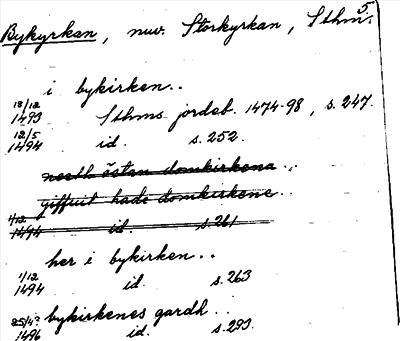 5.
Bykyrkan, nuv. Storkyrkan, Sthm.
i bykirken..
18/12 1493 Sthms jordeb. 1474-98, s. 247.
12/5 1494 id. s. 252.
nesth östan domkirkena..
giffwit hade domkirkene..
1/12 1494 id. s. 261
her i bykirken..
1/12 1494 id. s. 263
25/4? 1496 bykirkenes gardh..
id. s. 293.